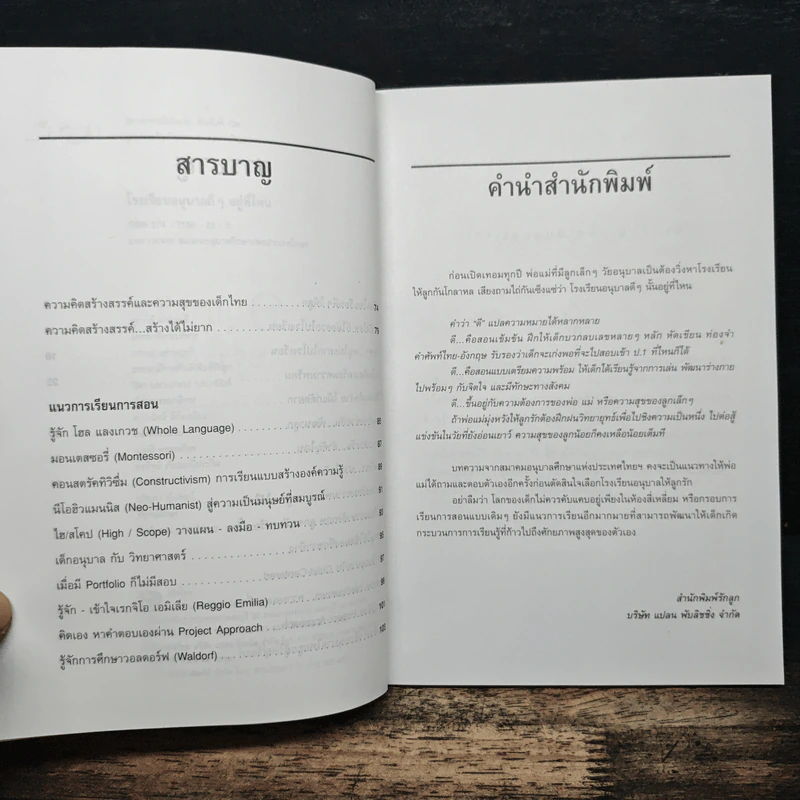 สารบาญ
ความคิดสร้างสรรค์และความสุขของเด็กไทย 74
ความคิดสร้างสรรค์...สร้างได้ไม่ยาก 79
แนวการเรียนการสอน
รู้จัก โฮล แลงเกวช (Whole Language)
มอนเตสซอรี่ (Montessori)
คอนสตรัคทิวิซึ่ม (Constructivism) การเรียนแบบสร้างองค์ความรู้
นีโอฮิวแมนนิส (Neo-Humanist) สู่ความเป็นมนุษย์ที่สมบูรณ์
ไฮ/สโคป (High / Scope) วางแผน - ลงมือ - ทบทวน
เด็กอนุบาล กับ วิทยาศาสตร์
เมื่อมี Portfolio ก็ไม่มีสอบ
รู้จัก - เข้าใจเรกจิโอ เอมิเลีย (Reggio Emilia) 101
คิดเอง หาคำตอบเองผ่าน Project Approach
รู้จักการศึกษาวอลดอร์ฟ (Waldorf)
คำนำสำนักพิมพ์
ก่อนเปิดเทอมทุกปี พ่อแม่ที่มีลูกเล็กๆ วัยอนุบาลเป็นต้องวิ่งหาโรงเรียน
ให้ลูกกันโกลาหล เสียงถามไถ่กันเซ็งแซ่ว่า โรงเรียนอนุบาลดีๆ นั้นอยู่ที่ไหน
คำว่า "ดี" แปลความหมายได้หลากหลาย
ดี...คือสอนเข้มข้น ฝึกให้เด็กบวกลบเลขหลายๆ หลัก หัดเขียน ท่องจำ
คำศัพท์ไทย-อังกฤษ รับรองว่าเด็กจะเก่งพอที่จะไปสอบเข้า ป.1 ที่ไหนก็ได้
ดี...คือสอนแบบเตรียมความพร้อม ให้เด็กได้เรียนรู้จากการเล่น พัฒนาร่างกาย
ไปพร้อมๆ กับจิตใจ และมีทักษะทางสังคม
ดี...ขึ้นอยู่กับความต้องการของพ่อ แม่ หรือความสุขของลูกเล็กๆ
ถ้าพ่อแม่มุ่งหวังให้ลูกรักต้องฝึกฝนวิทยายุทธ์เพื่อไปชิงความเป็นหนึ่ง ไปต่อสู้
แข่งขันในวัยที่ยังอ่อนเยาว์ ความสุขของลูกน้อยก็คงเหลือน้อยเต็มที
บทความจากสมาคมอนุบาลศึกษาแห่งประเทศไทยฯ คงจะเป็นแนวทางให้พ่อ
แม่ได้ถามและตอบตัวเองอีกครั้งก่อนตัดสินใจเลือกโรงเรียนอนุบาลให้ลูกรัก
อย่าลืมว่า โลกของเด็กไม่ควรคับแคบอยู่เพียงในห้องสี่เหลี่ยม หรือกรอบการ
เรียนการสอนแบบเดิมๆ ยังมีแนวการเรียนอีกมากมายที่สามารถพัฒนาให้เด็กเกิด
กระบวนการการเรียนรู้ที่ก้าวไปถึงศักยภาพสูงสุดของตัวเอง
สำนักพิมพ์รักลูก
บริษัท แปลน พับลิชชิ่ง จำกัด